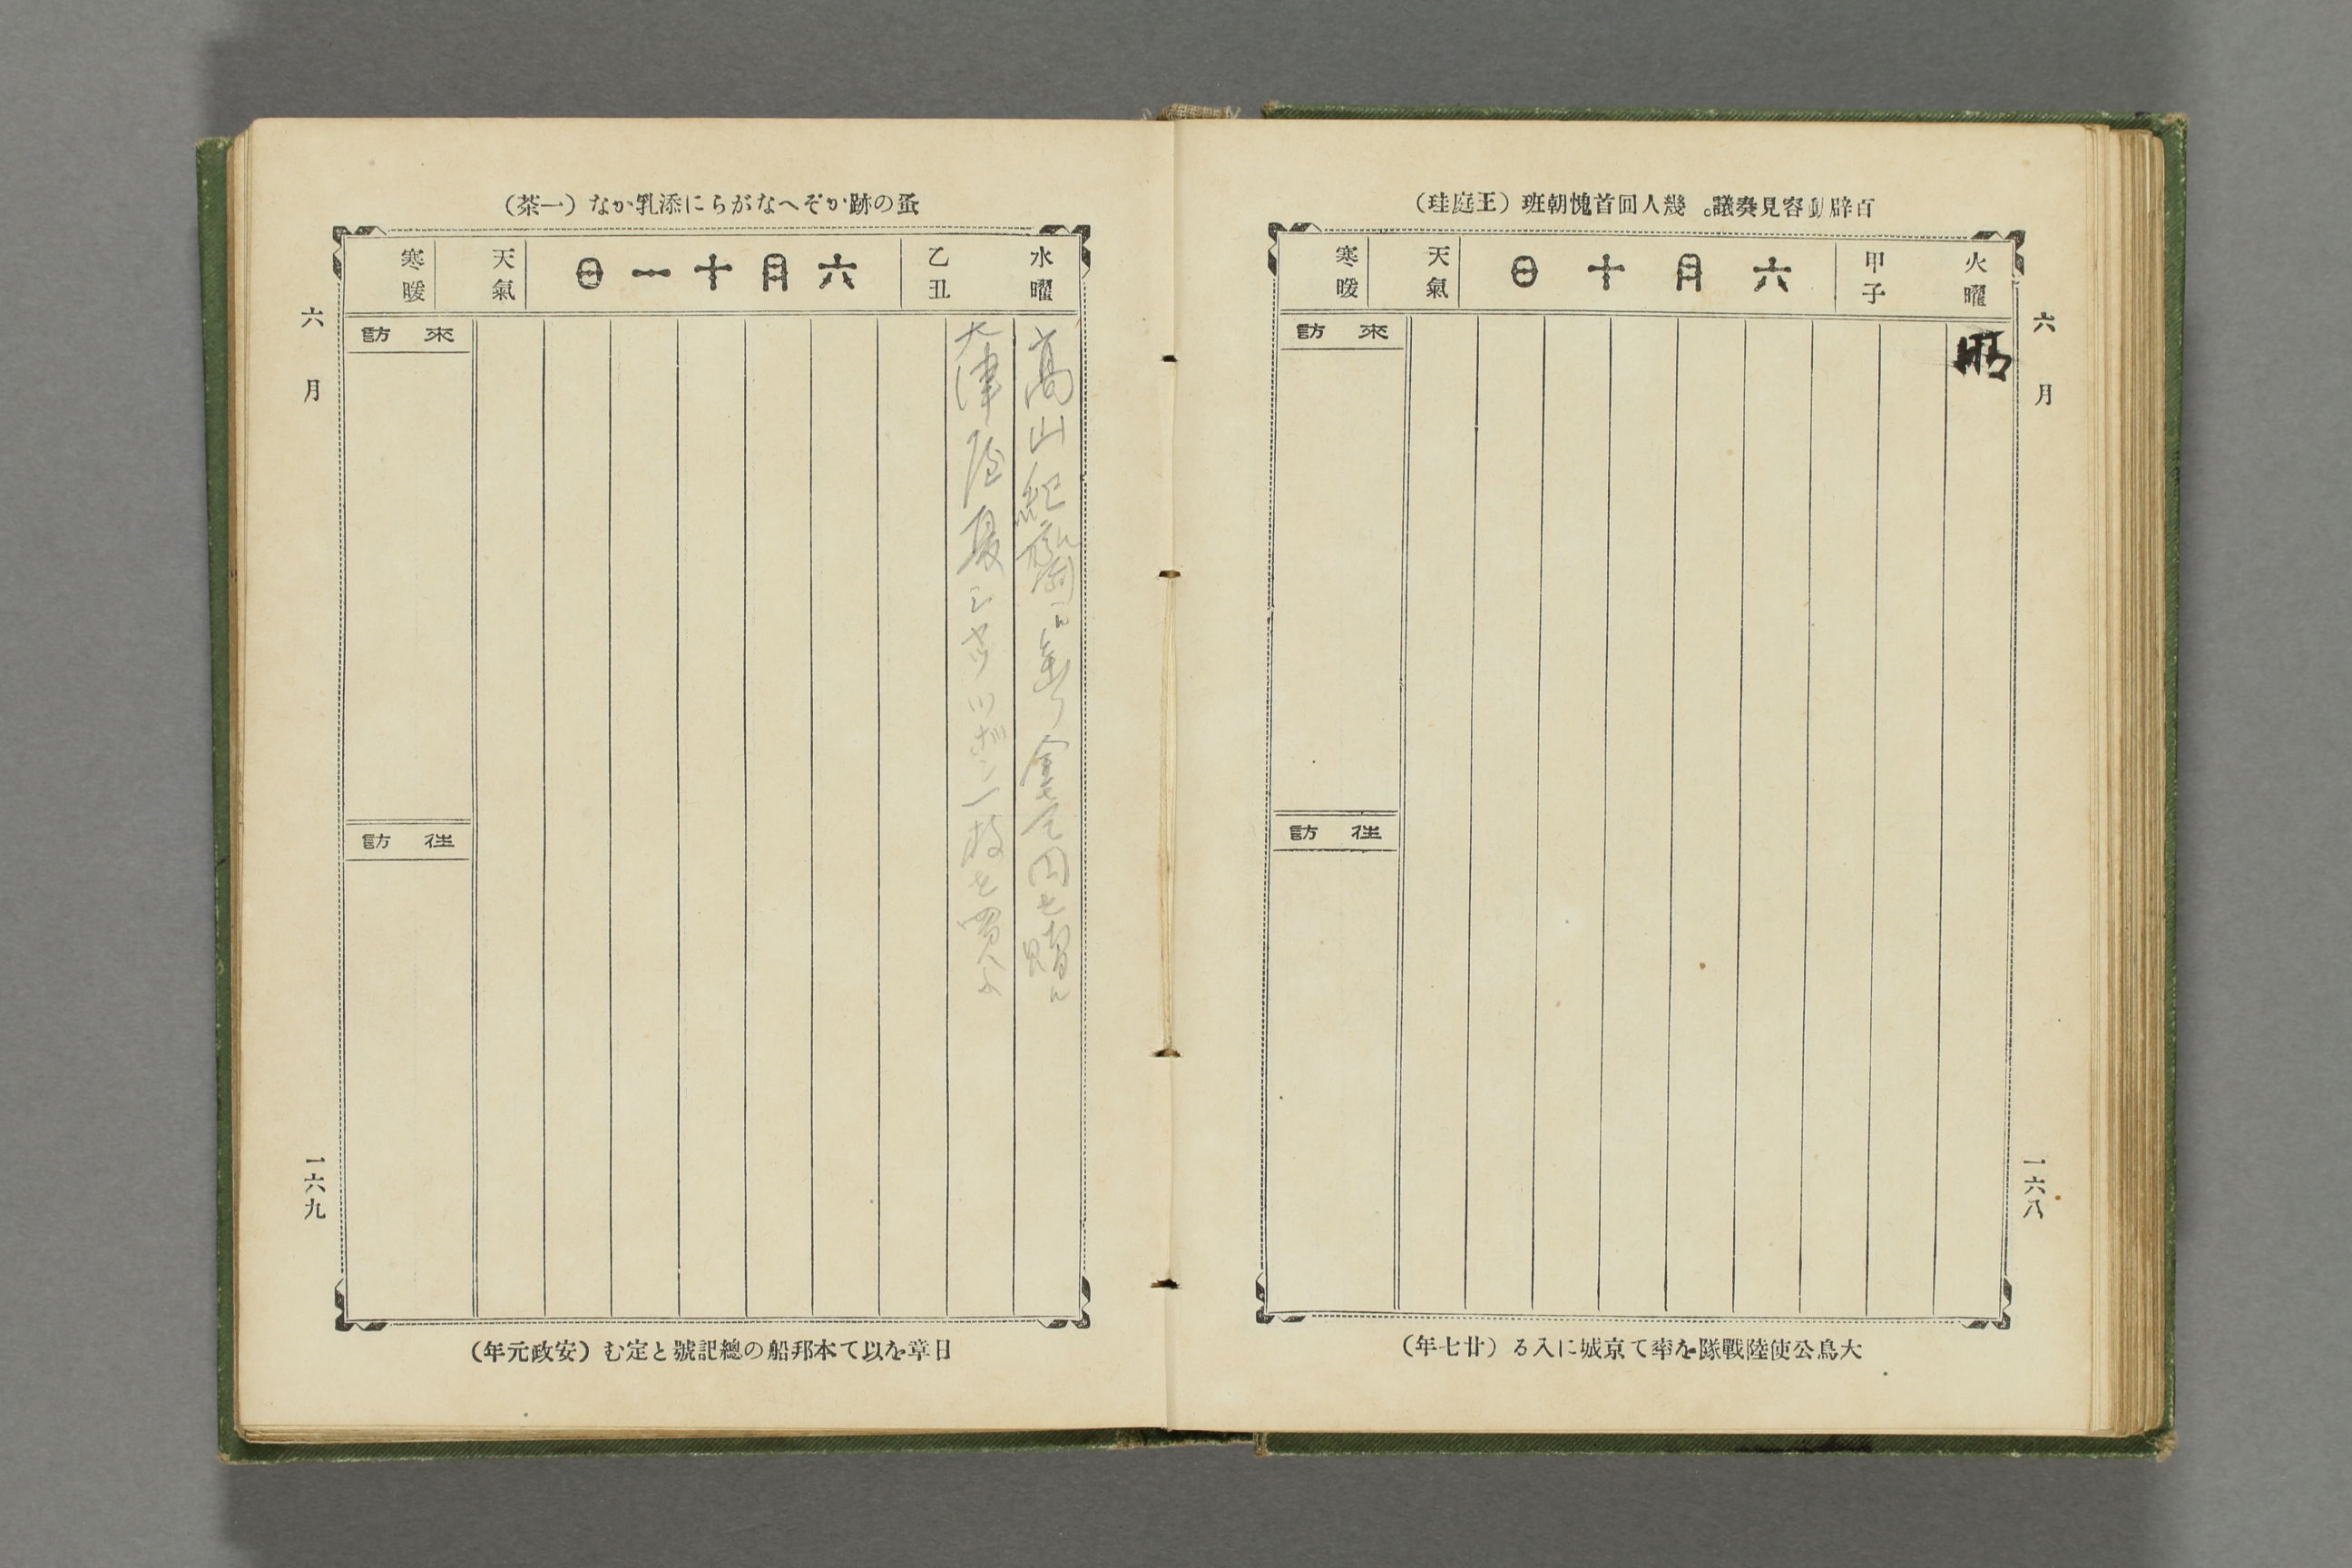 百辟動容見奏議。幾人回首愧朝班（王庭珪）
火曜 甲子 六月十日 天氣 寒暖
來訪
往訪
六月
一六八
大鳥公使陸戰隊を率て京城に入る（廿七年）
蚤の跡かぞへながらに添乳かな（一茶）
水曜 乙丑 六月十一日 天氣 寒暖
高山紀齋
金 円を贈ル
大津屋夏シヤツヅボン一枚を買ふ
來訪
往訪
六月
一六九
日章を以て本邦船の總記號と定む（安政元年）